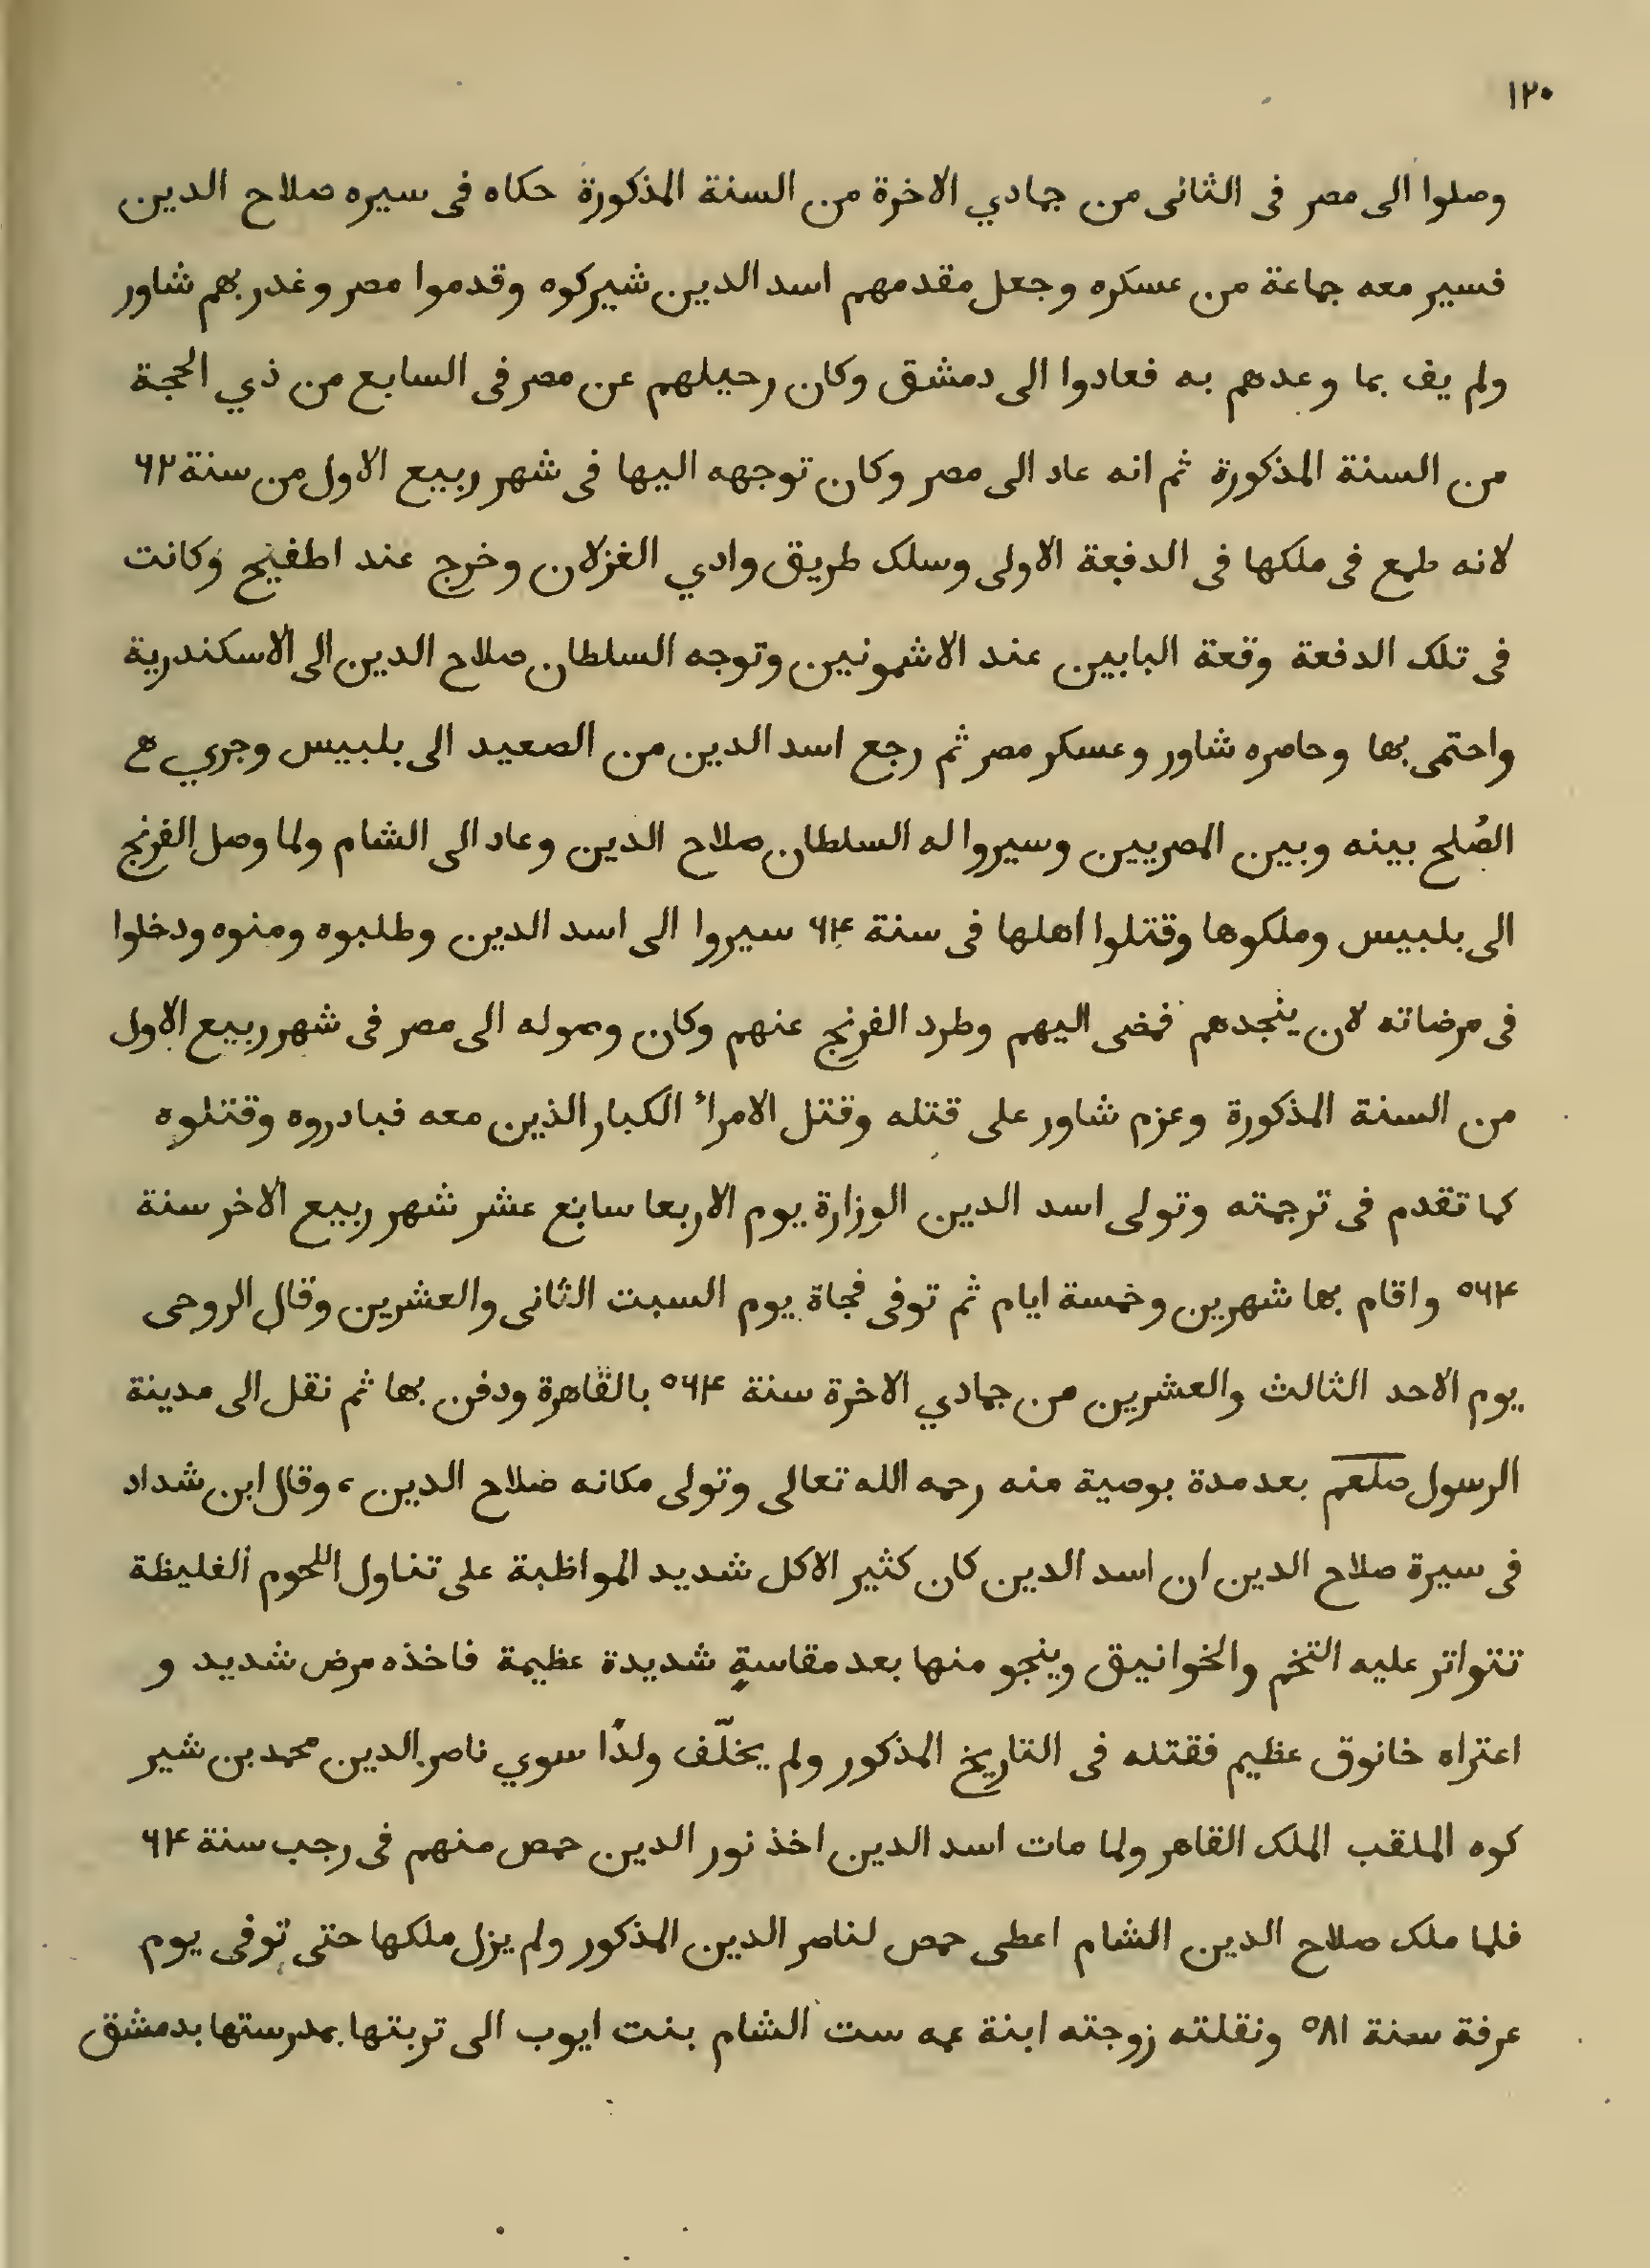 ١٢٠
وصلوا الى مصر فى الثانى من جمادي الاخرة من السنة المذكورة حكاه فى سيره صلاح الدين
فسير معه جماعة من عسكره وجعل مقدمهم اسد الدين شيركوه وقدموا مصر وغدر بهم شاور
ولم يف بما وعدهم به فعادوا الى دمشق وكان رحيلهم عن مصر فى السابع من ذي الحجة
من السنة المذكورة ثم انه عاد الى مصر وكان توجهه اليها فى شهر ربيع الاول من سنة ٦٢
لانه طمع فى ملكها فى الدفعة الاولى وسلك طريق وادي الغزلان وخرج عند اطفيح وكانت
فى تلك الدفعة وقعة البابين عند الاشمونين وتوجه السلطان صلاح الدين الى الاسكندرية
واحتمى بها وحاصره شاور وعسكر مصر ثم رجع اسد الدين من الصعيد الى بلبيس وجري
الصُلح بينه وبين المصريين وسيروا له السلطان صلاح الدين وعاد الى الشام ولما وصل الفرنج
الى بلبيس وملكوها وقتلوا اهلها فى سنة ٦۴ سيروا الى اسد الدين وطلبوه ومنوه ودخلوا
فى مرضاته لان ينجدهم فمضى اليهم وطرد الفرنج عنهم وكان وصوله الى مصر فى شهر ربيع الاول
من السنة المذكورة وعزم شاور على قتله وقتل الامراء الكبار الذين معه فبادروه وقتلوه
كما تقدم فى ترجمته وتولى اسد الدين الوزارة يوم الاربعا سابع عشر شهر ربيع الاخر سنة
٥٦۴ واقام بها شهرين وخمسة ايام ثم توفى فجاة يوم السبت الثانى والعشرين وقال الروحى
يوم الاحد الثالث والعشرين من جمادي الاخرة سنة ٥٦۴ بالقاهرة ودفن بها ثم نقل الى مدينة
الرسول صلعم بعد مدة بوصية منه رحمه الله تعالى وتولى مكانه صلاح الدين، وقال ابن شداد
فى سيرة صلاح الدين ان اسد الدين كان كثير الاكل شديد المواظبة على تناول اللحوم الغليظة
تتواتر عليه التخم والخوانيق وينجو منها بعد مقاسةٍ شديدة عظيمة فاخذه مرض شديد و
اعتراه خانوق عظيم فقتله فى التاريخ المذكور ولم يخلّف ولدًا سوي ناصر الدين محمد بن شير
كوه الملقب الملك القاهر ولما مات اسد الدين اخذ نور الدين حمص منهم فى رجب سنة ٦۴
فلما ملك صلاح الدين الشام اعطى حمص لناصر الدين المذكور ولم يزل ملكها حتى توفى يوم
عرفة سنة ٥٨١ ونقلته زوجته ابنة عمه ست الشام بنت ايوب الى تربتها بمدرستها بدمشق